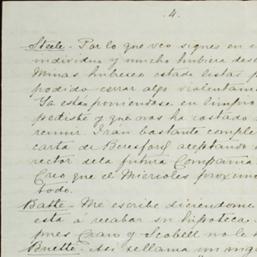 .4.
Steele.- Por lo que veo sigues en e
individuo y mucho hubiera des
Minas hubiesen estado listas p
podido cerrar algo violentam
Ya están poniéndose en limpio
pediste y que mas ha costado
reunir. Iran bastante comple
carta de Beresford aceptando
rector de la futura Compania
Creo que el Miercoles proximo
todo.
Batte- Me escribe diciendome
esta a recabar su hipoteca.
pues Craw y Scobell no le
Bnette- Asi se llama un